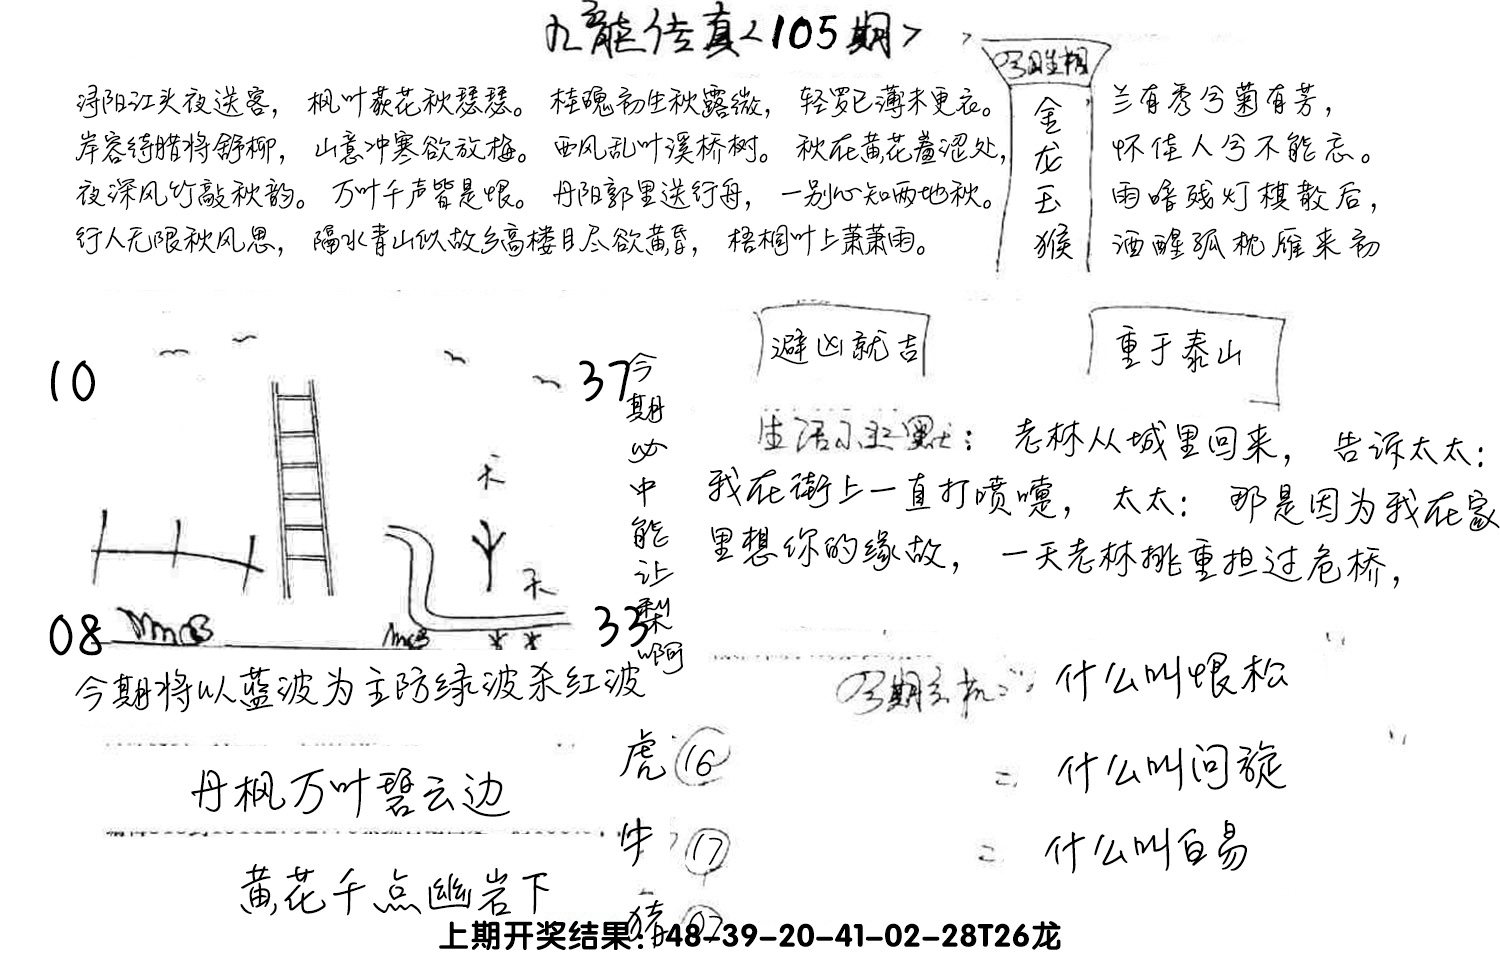 九龙传真<105期>
浔阳江头夜送客，枫叶荻花秋瑟瑟。桂魄初生秋露微，轻罗已薄未更衣。
岸容待腊将舒柳，山意冲寒欲放梅。西风乱叶溪桥树。秋在黄花羞涩处，
夜深风竹敲秋韵。万叶千声皆是恨。丹阳郭里送行舟，一别心知两地秋。
行人无限秋风思，隔水青山似故乡高楼目尽欲黄昏，梧桐叶上萧萧雨。
金
龙
玉
猴
兰有秀兮菊有芳，
怀佳人兮不能忘。
雨暗残灯棋散后，
酒醒孤枕雁来初
10
37
08
33
天
天
今期必中能让梨啊
避凶就吉
重于泰山
生活小幽默：老林从城里回来，告诉太太：
我在街上一直打喷嚏，太太：那是因为我在家
里想你的缘故，一天老林挑重担过危桥，
今期将以蓝波为主防绿波杀红波
丹枫万叶碧云边
黄花千点幽岩下
虎 16
牛 17
猪 02
今期玄机：什么叫恨松
= 什么叫问旋
= 什么叫白易
上期开奖结果：48-39-20-41-02-28T26龙